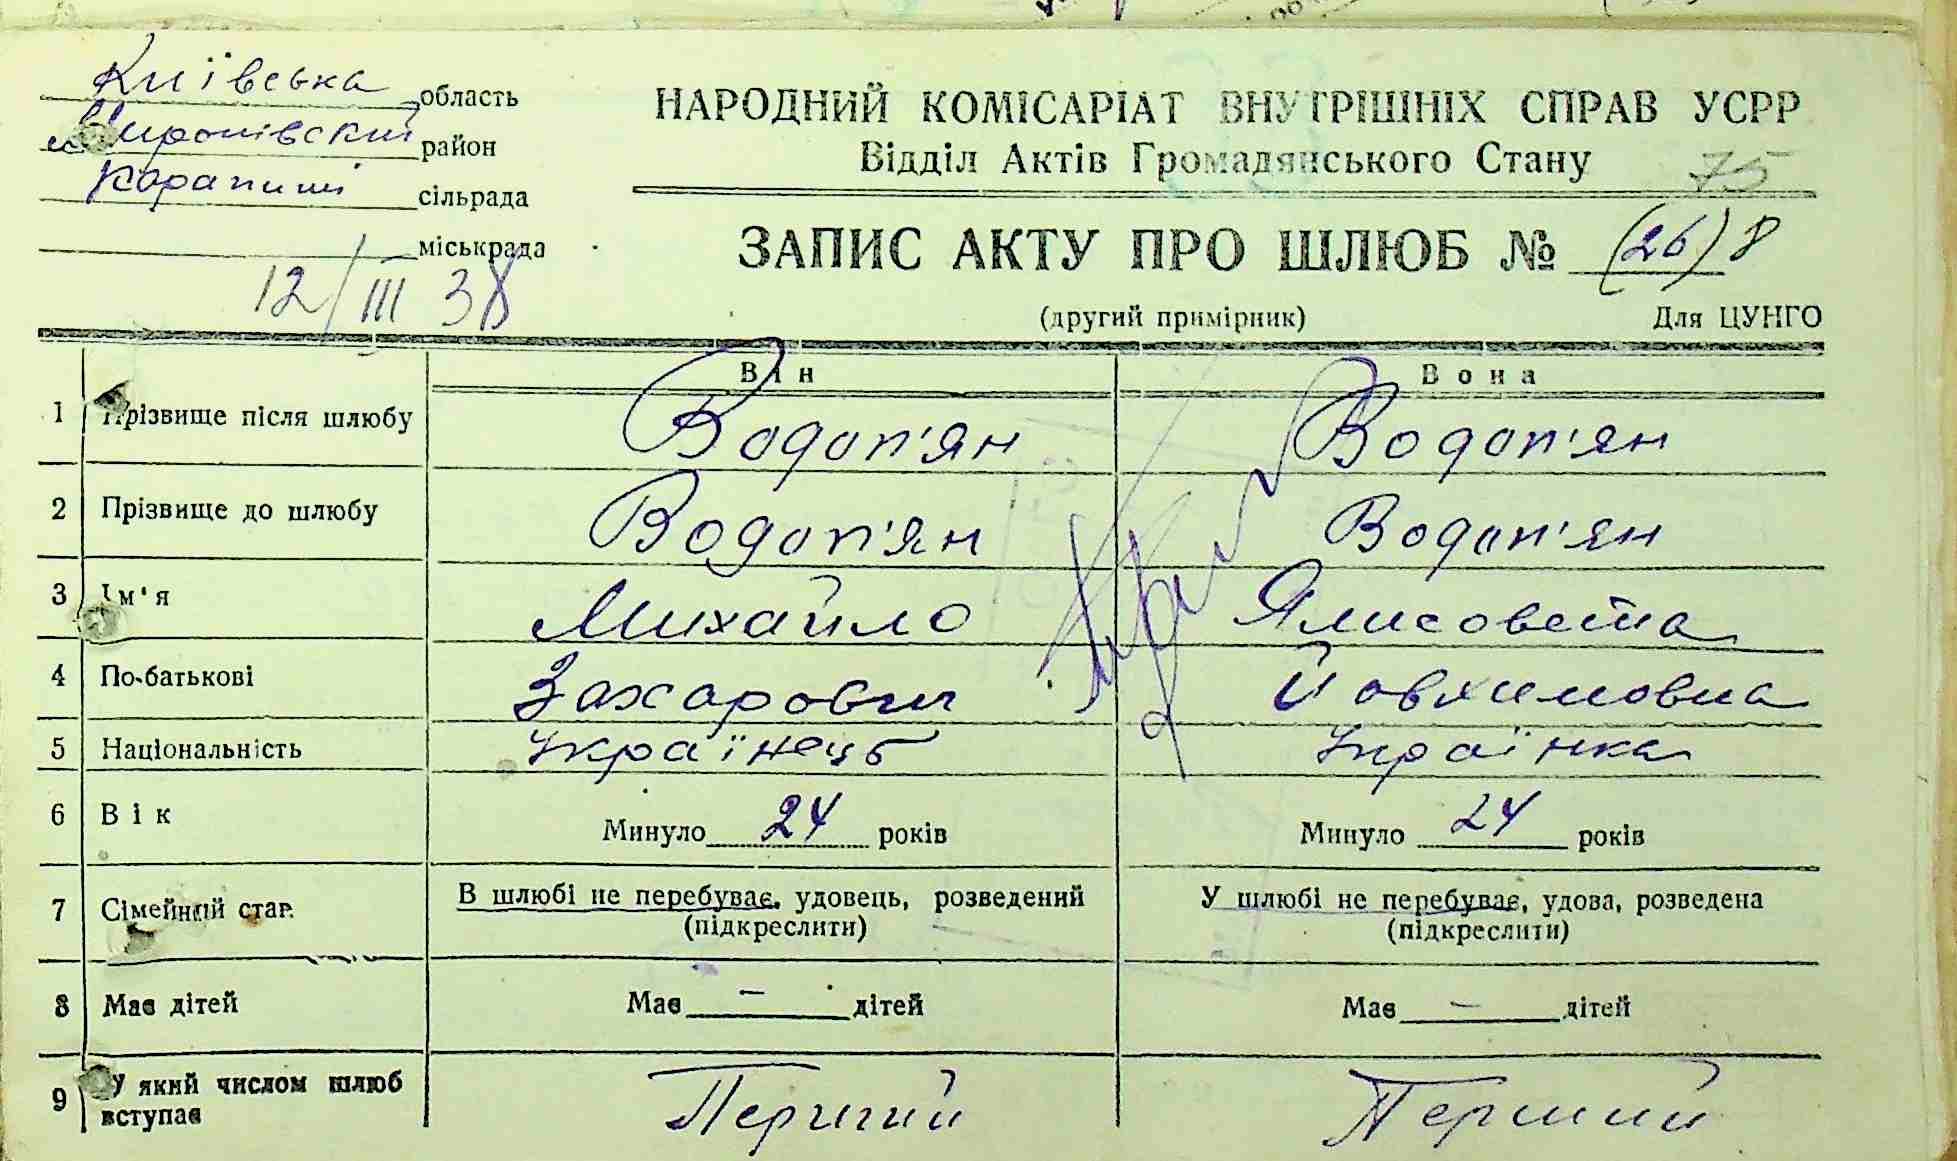 Київська область
Миронівский район
Карапиши сільрада
міськрада
12/III 38
НАРОДНИЙ КОМІСАРІАТ ВНУТРІШНІХ СПРАВ УСРР
Відділ Актів Громадянського Стану
75
ЗАПИС АКТУ ПРО ШЛЮБ № (26) 8
(другий примірник) Для ЦУНГО
Він Вона
1 Прізвище після шлюбу Водоп'ян Водоп'ян
2 Прізвище до шлюбу Водоп'ян Водоп'ян
3 Ім'я Михайло Ялисовета
4 По-батькові Захарович Йовхимовна
5 Національність Українець Українка
6 Вік Минуло 24 років Минуло 24 років
7 Сімейний стан В шлюбі не перебуває, удовець, розведений У шлюбі не перебуває, удова, розведена
(підкреслити) (підкреслити)
8 Має дітей Має — дітей Має — дітей
9 У який числом шлюб Перший Перший
вступає